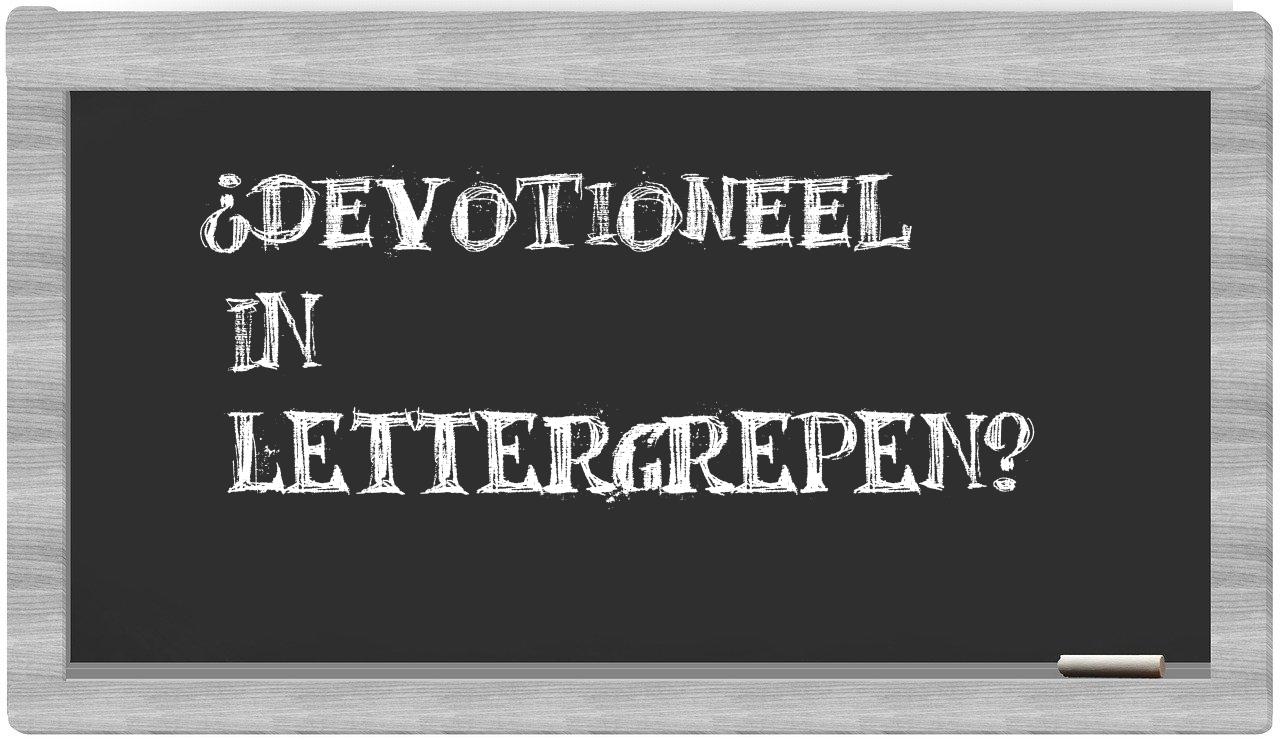 ¿DEVOTIONEEL
IN
LETTERGREPEN?